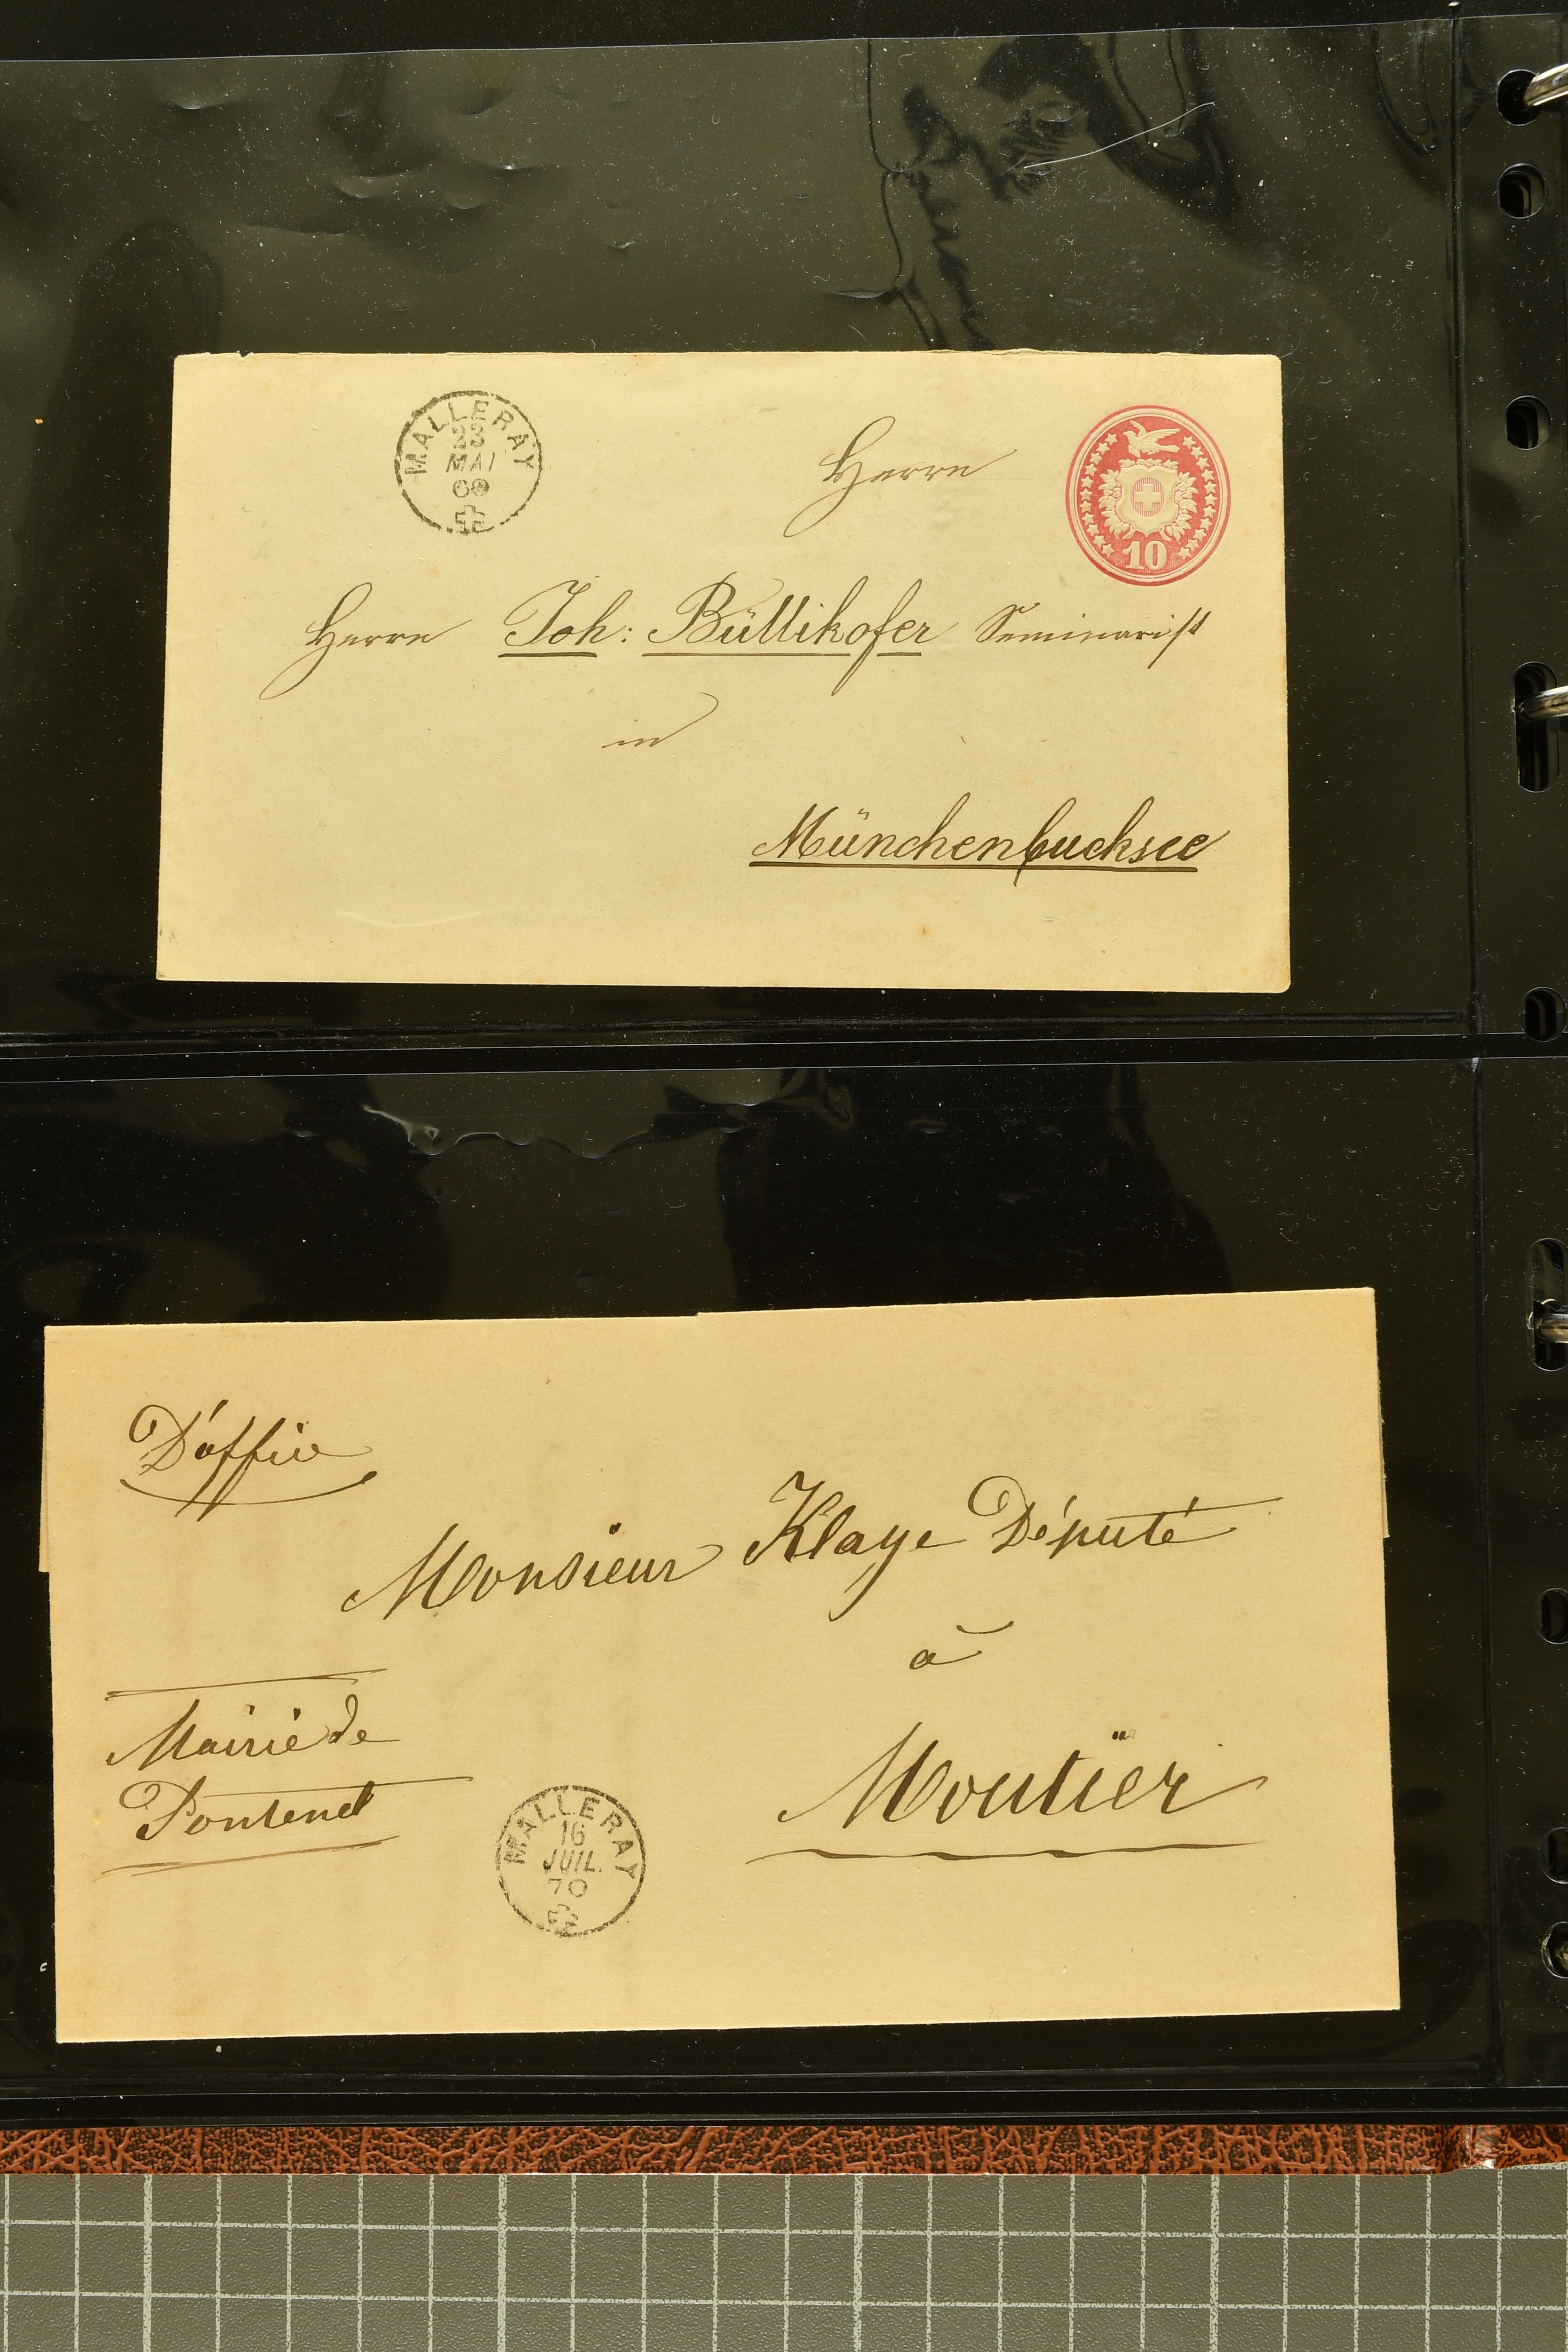 MALLERAY
23
MAI
Herrn
10
Herrn Joh: Büttikofer Seminarist
in
Münchenbucksee
D'office
Monsieur Klaye Député
à
Moutier
Mairie de
Pontenet
MALLERAY
16
JUIL.
70